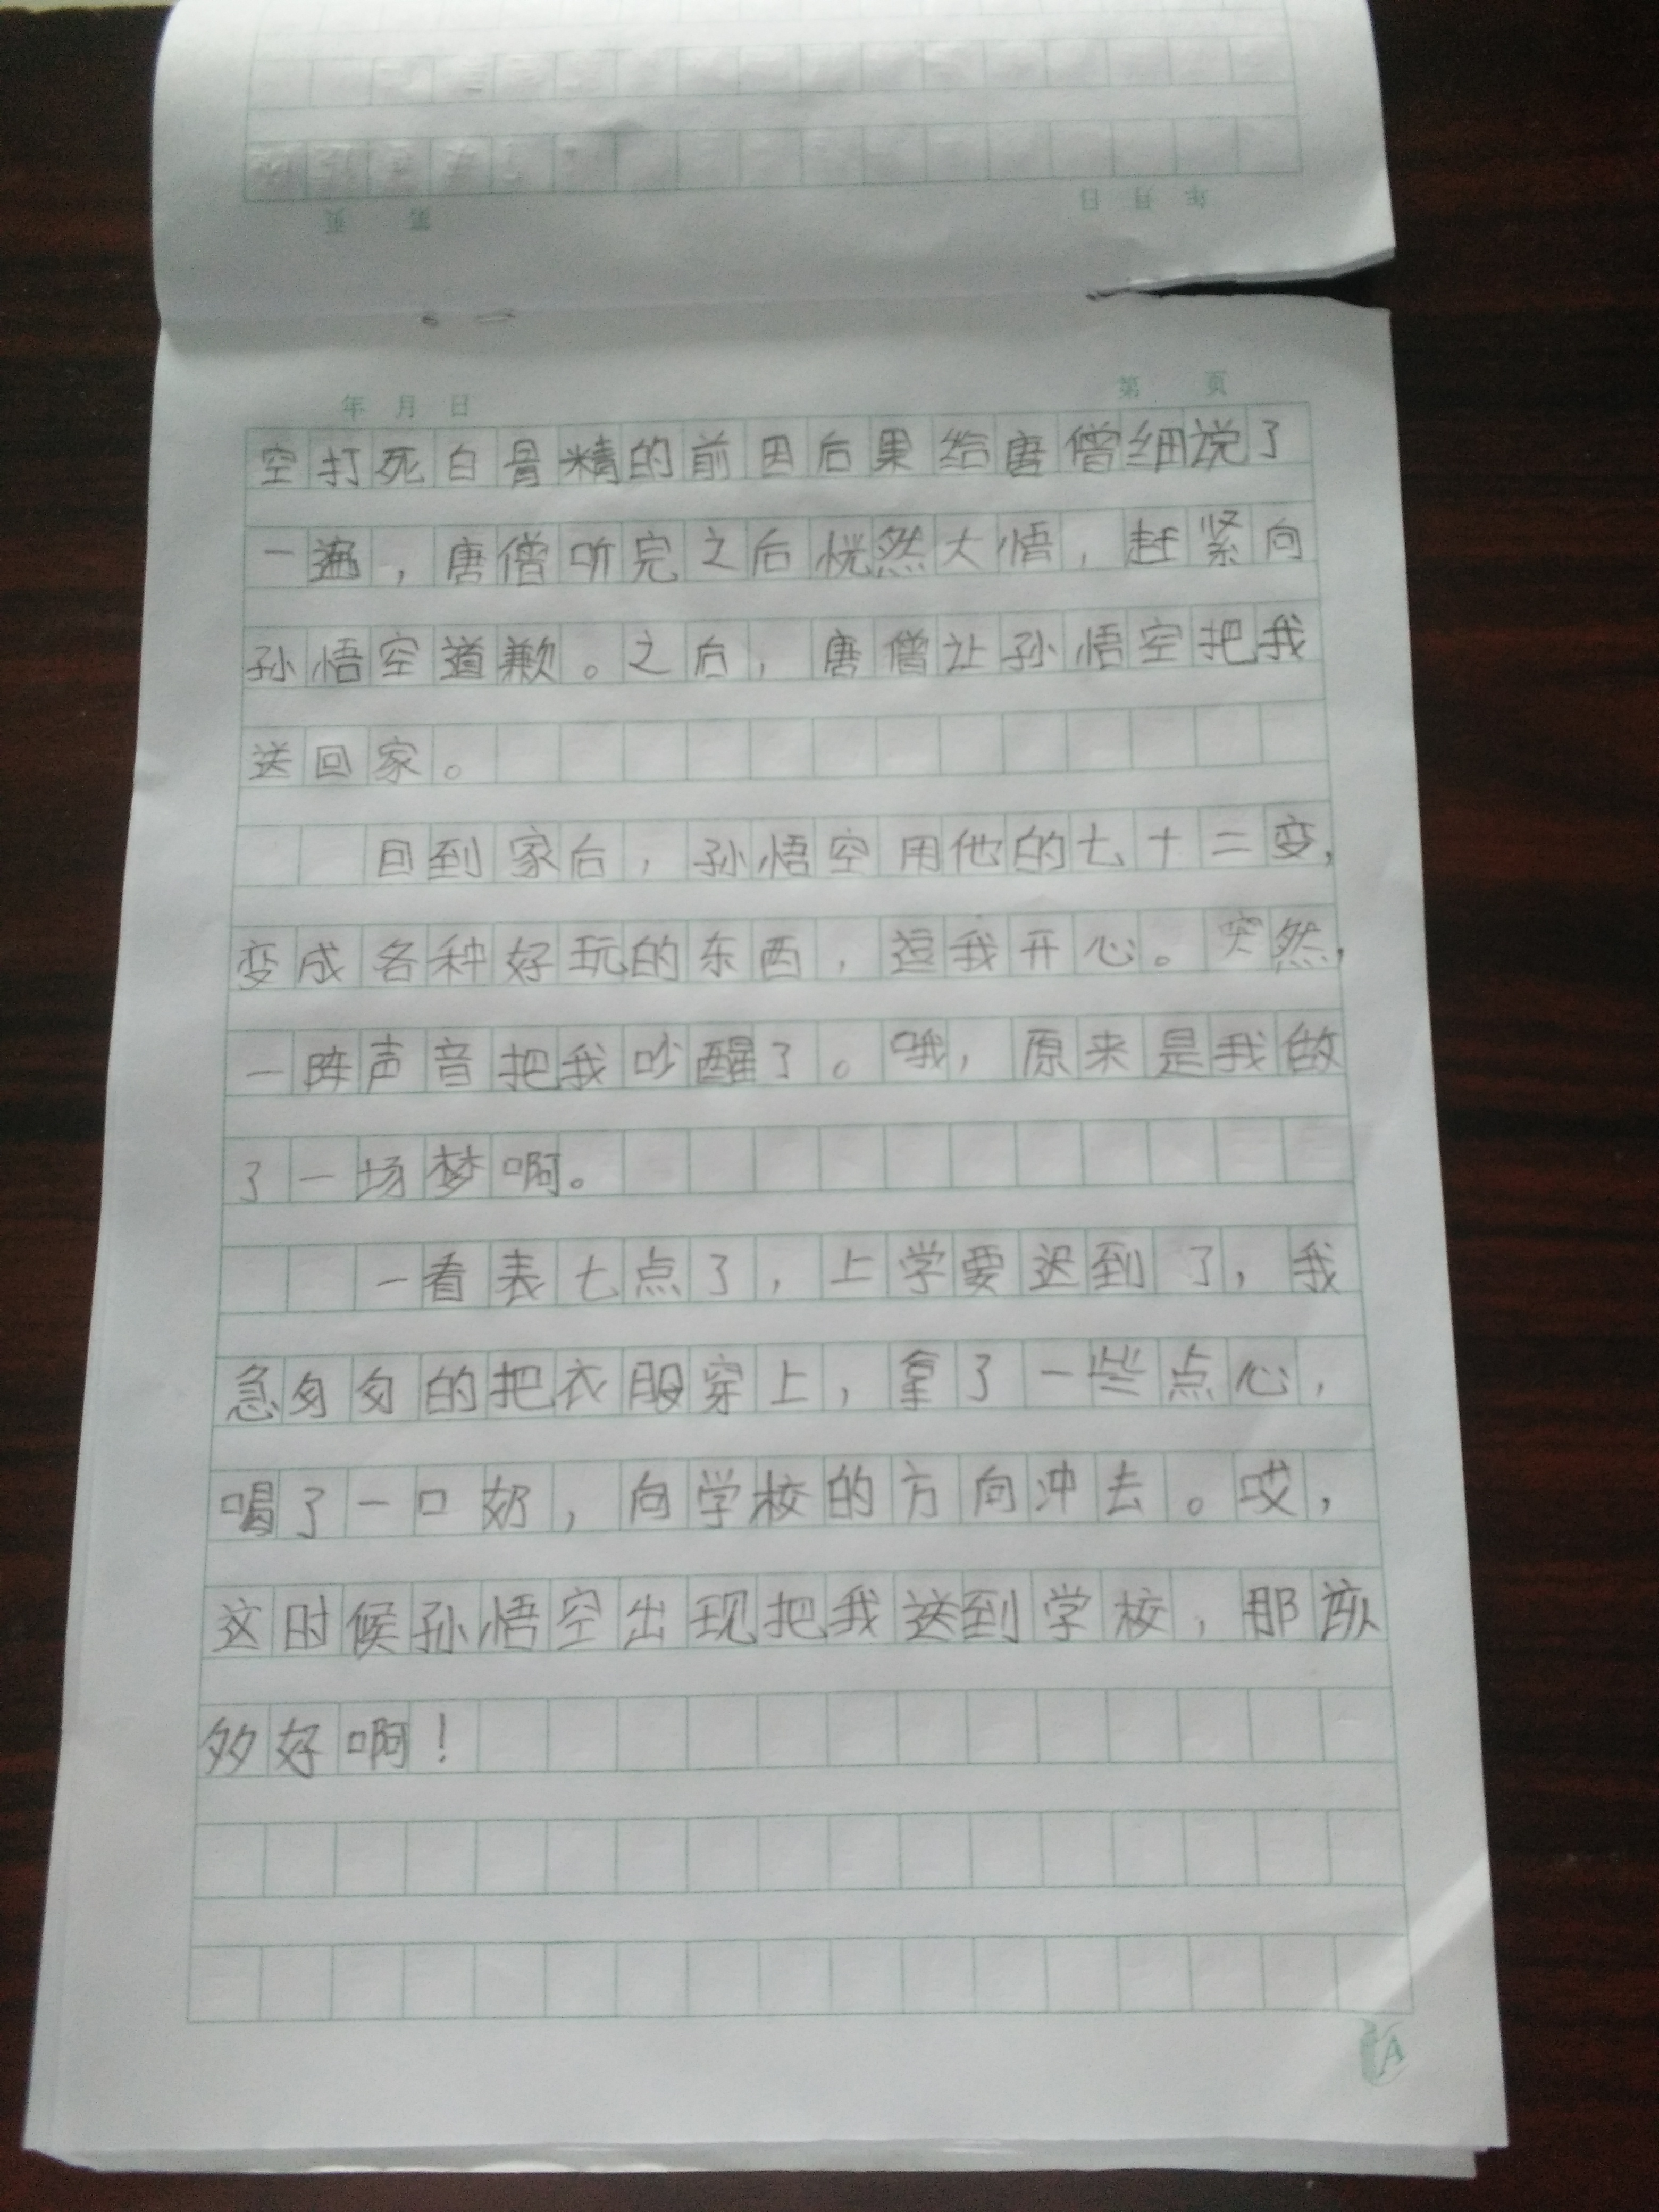 年 月 日 第 页
空打死白骨精的前因后果给唐僧细说了
一遍，唐僧听完之后恍然大悟，赶紧向
孙悟空道歉。之后，唐僧让孙悟空把我
送回家。
回到家后，孙悟空用他的七十二变，
变成各种好玩的东西，逗我开心。突然，
一阵声音把我吵醒了。哦，原来是我做
了一场梦啊。
一看表七点了，上学要迟到了，我
急匆匆的把衣服穿上，拿了一些点心，
喝了一口奶，向学校的方向冲去。哎，
这时候孙悟空出现把我送到学校，那该
多好啊！